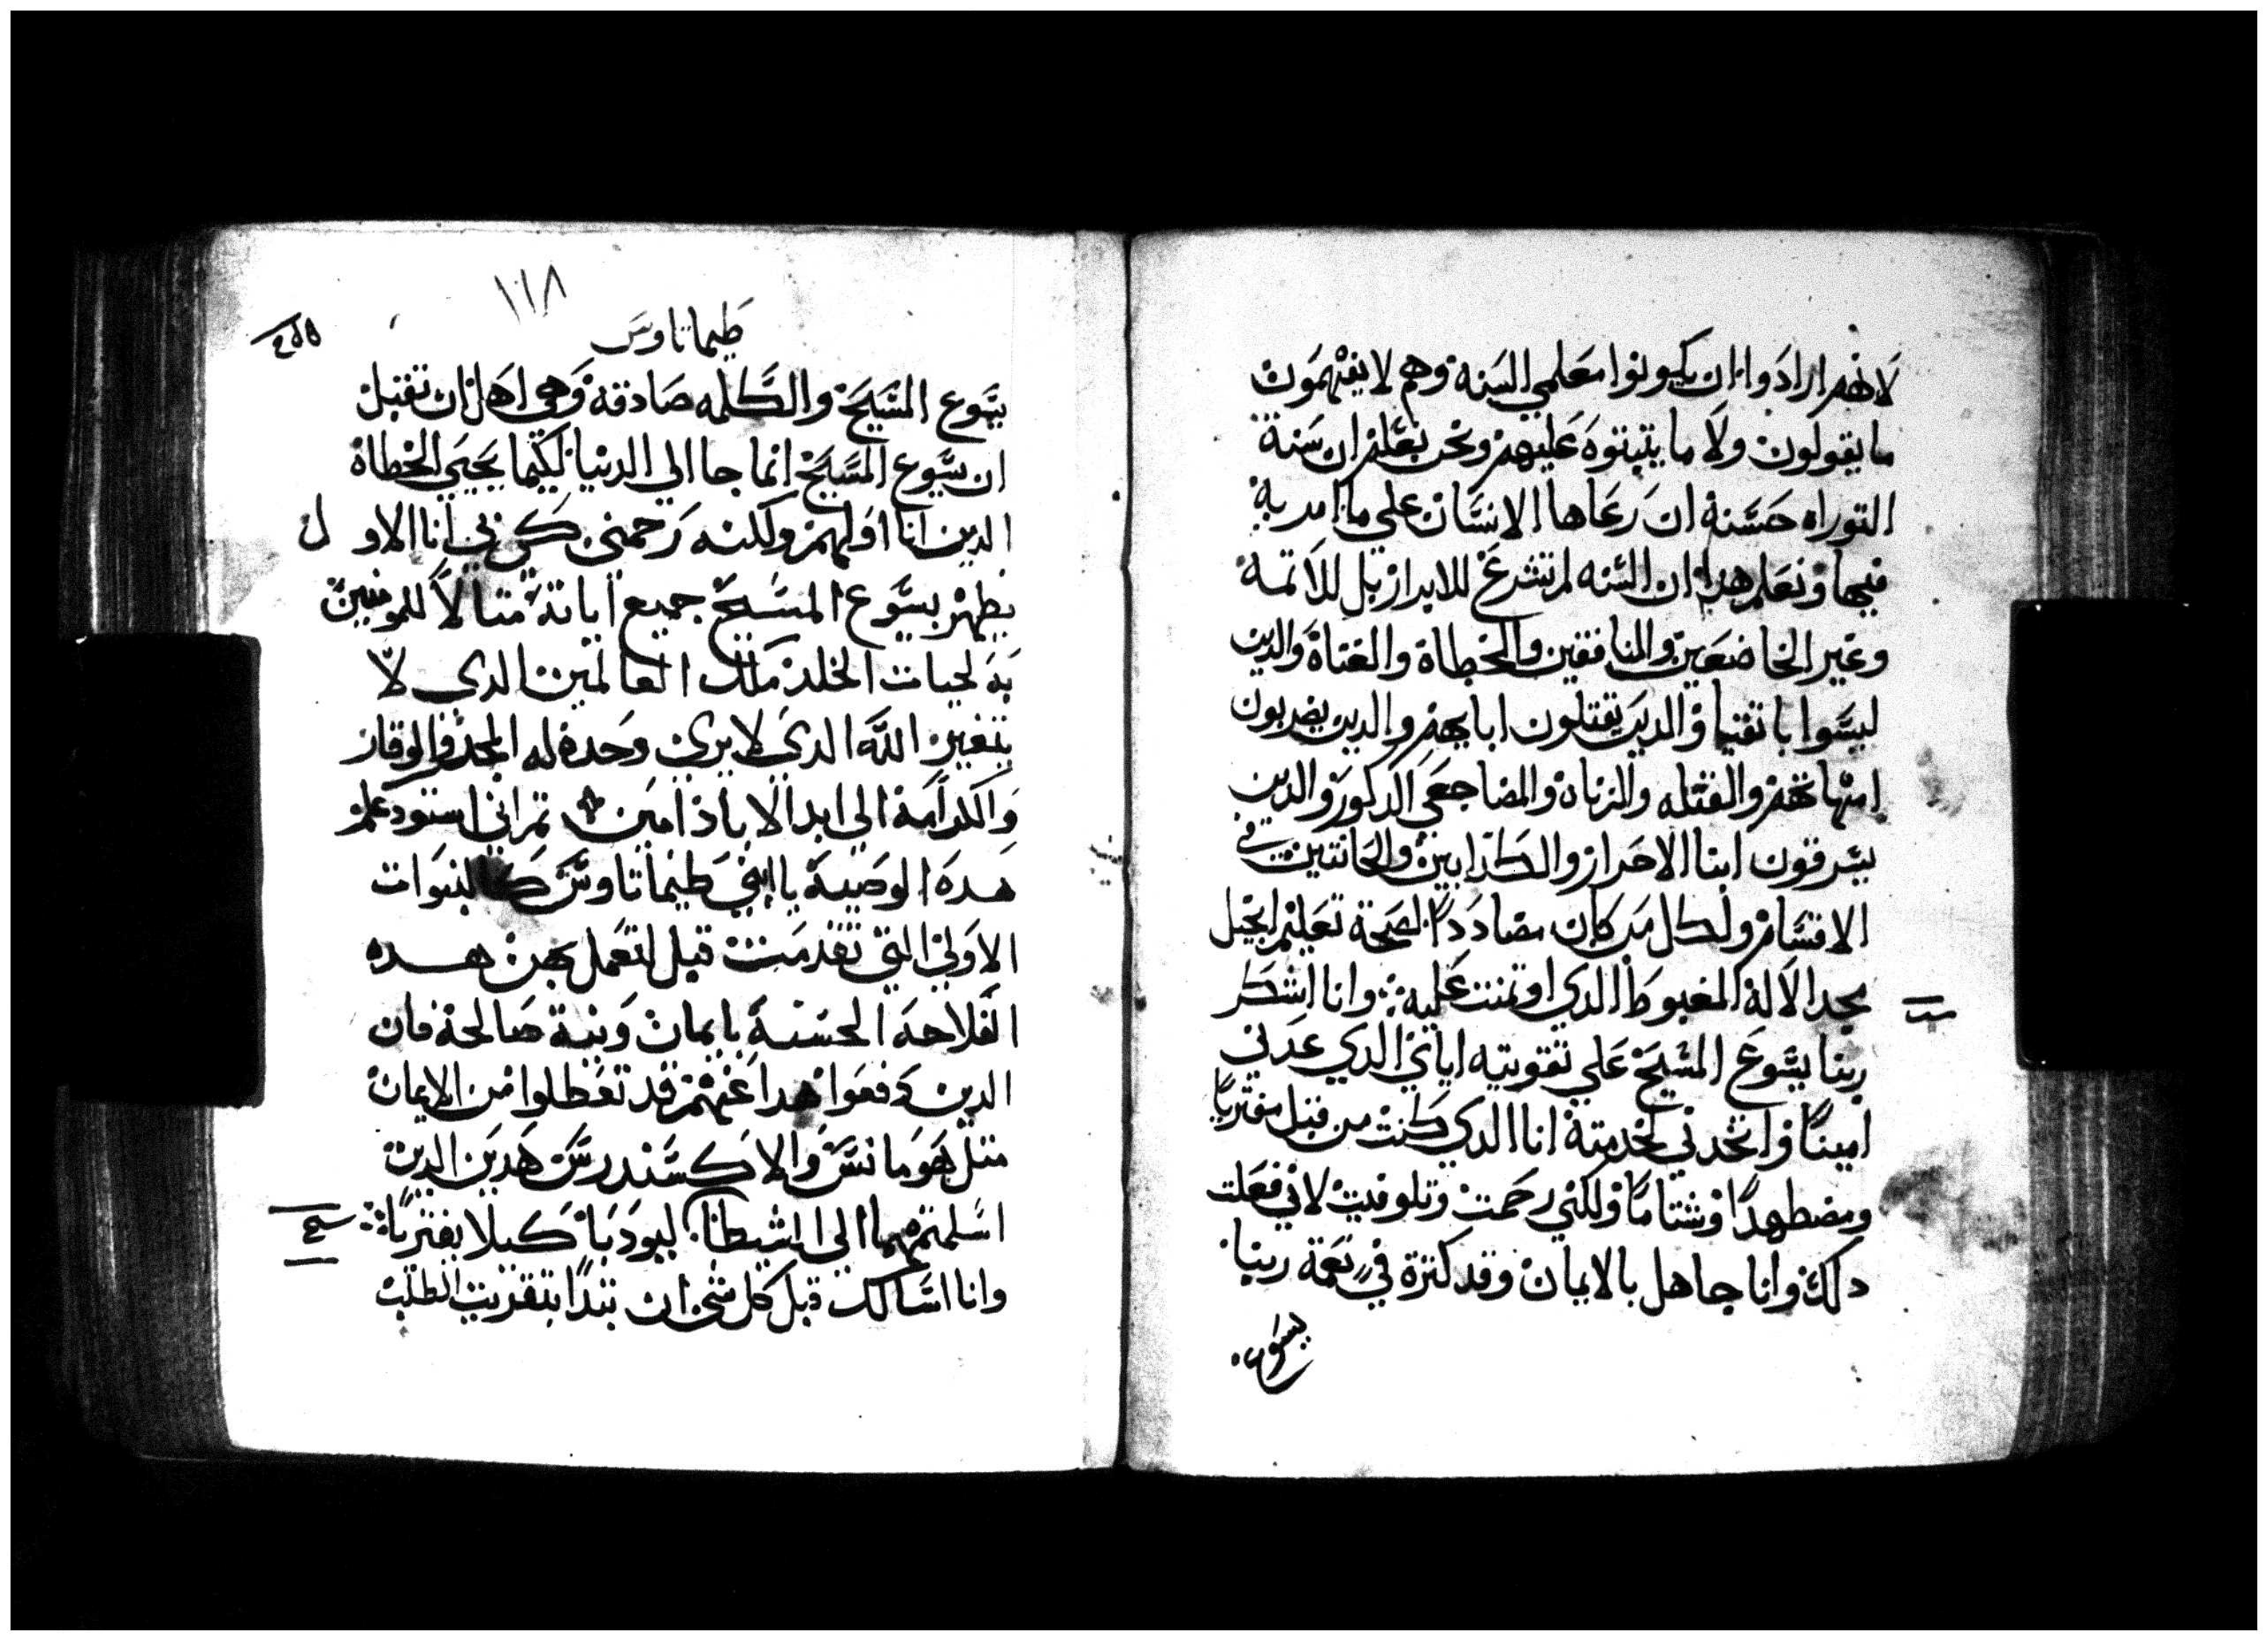 لانهم ارادوا ان يكونوا معلمي السنة وهم لا يفهمون
ما يقولون ولا ما يتبتوه عليهم ونحن نعلم ان سنة
التوراه حسنة ان رعاها الانسان علي ما امر به
فيها ونعلم هدا ان السنه لم تشرع للابرار بل للاتمة
وغير الخاضعين والمنافقين والخطاة والعتاة والدين
ليسوا باتقيا والدين يقتلون ابايهم والدين يضربون
امهاتهم والقتله والزناه والمضاجعي الدكور والدين
يسرقون ابنا الاحرار والكدابين والحانتين في
الاقسام ولكل من كان مضاددا لصحة تعليم انجيل
مجد الالة المغبوط الدي اوتمنت علية وانا اشكر
ربنا يسوع المسيح علي تقويته اياي الدي عدني
امينا واتخدني لخدمتة انا الدي كنت من قبل مفتريا
ومضطهدا وشتاما ولكني رحمت وتلوفيت لاني فعلت
دلك وانا جاهل بالايمان وقد كترة في نعمة ربنا
يسوع
١١٨
طيماتاوس
يسوع المسيح والكلمه صادقة وهي اهل ان تقبل
ان يسوع المسيح انما جا الي الدنيا لكيما يحيي الخطاة
الدين انا اولهم ولكنه رحمني كي في انا الاول
يظهر يسوع المسيح جميع اياتة متالا للمومنين
به لحيات الخلد ملك العالمين الدي لا
يتغير الله الدي لا يري وحدة له المجد والوقار
والكرامة الي ابد الاباد امين تم اني استودعكم
هده الوصية يا ابني طيماتاوس كالنبوات
الاولي التي تقدمت قبل لتعمل بهن هده
الفلاحة الحسنة بايمان ونية صالحة فان
الدين دفعوا هدا عنهم قد تعطلوا من الايمان
متل هومانس والاكسندرس هدين الدين
اسلمتهما الي الشيطان ليودبا كيلا يفتريا
وانا اسالك قبل كل شي ان تبدا بتقريب الطلبت